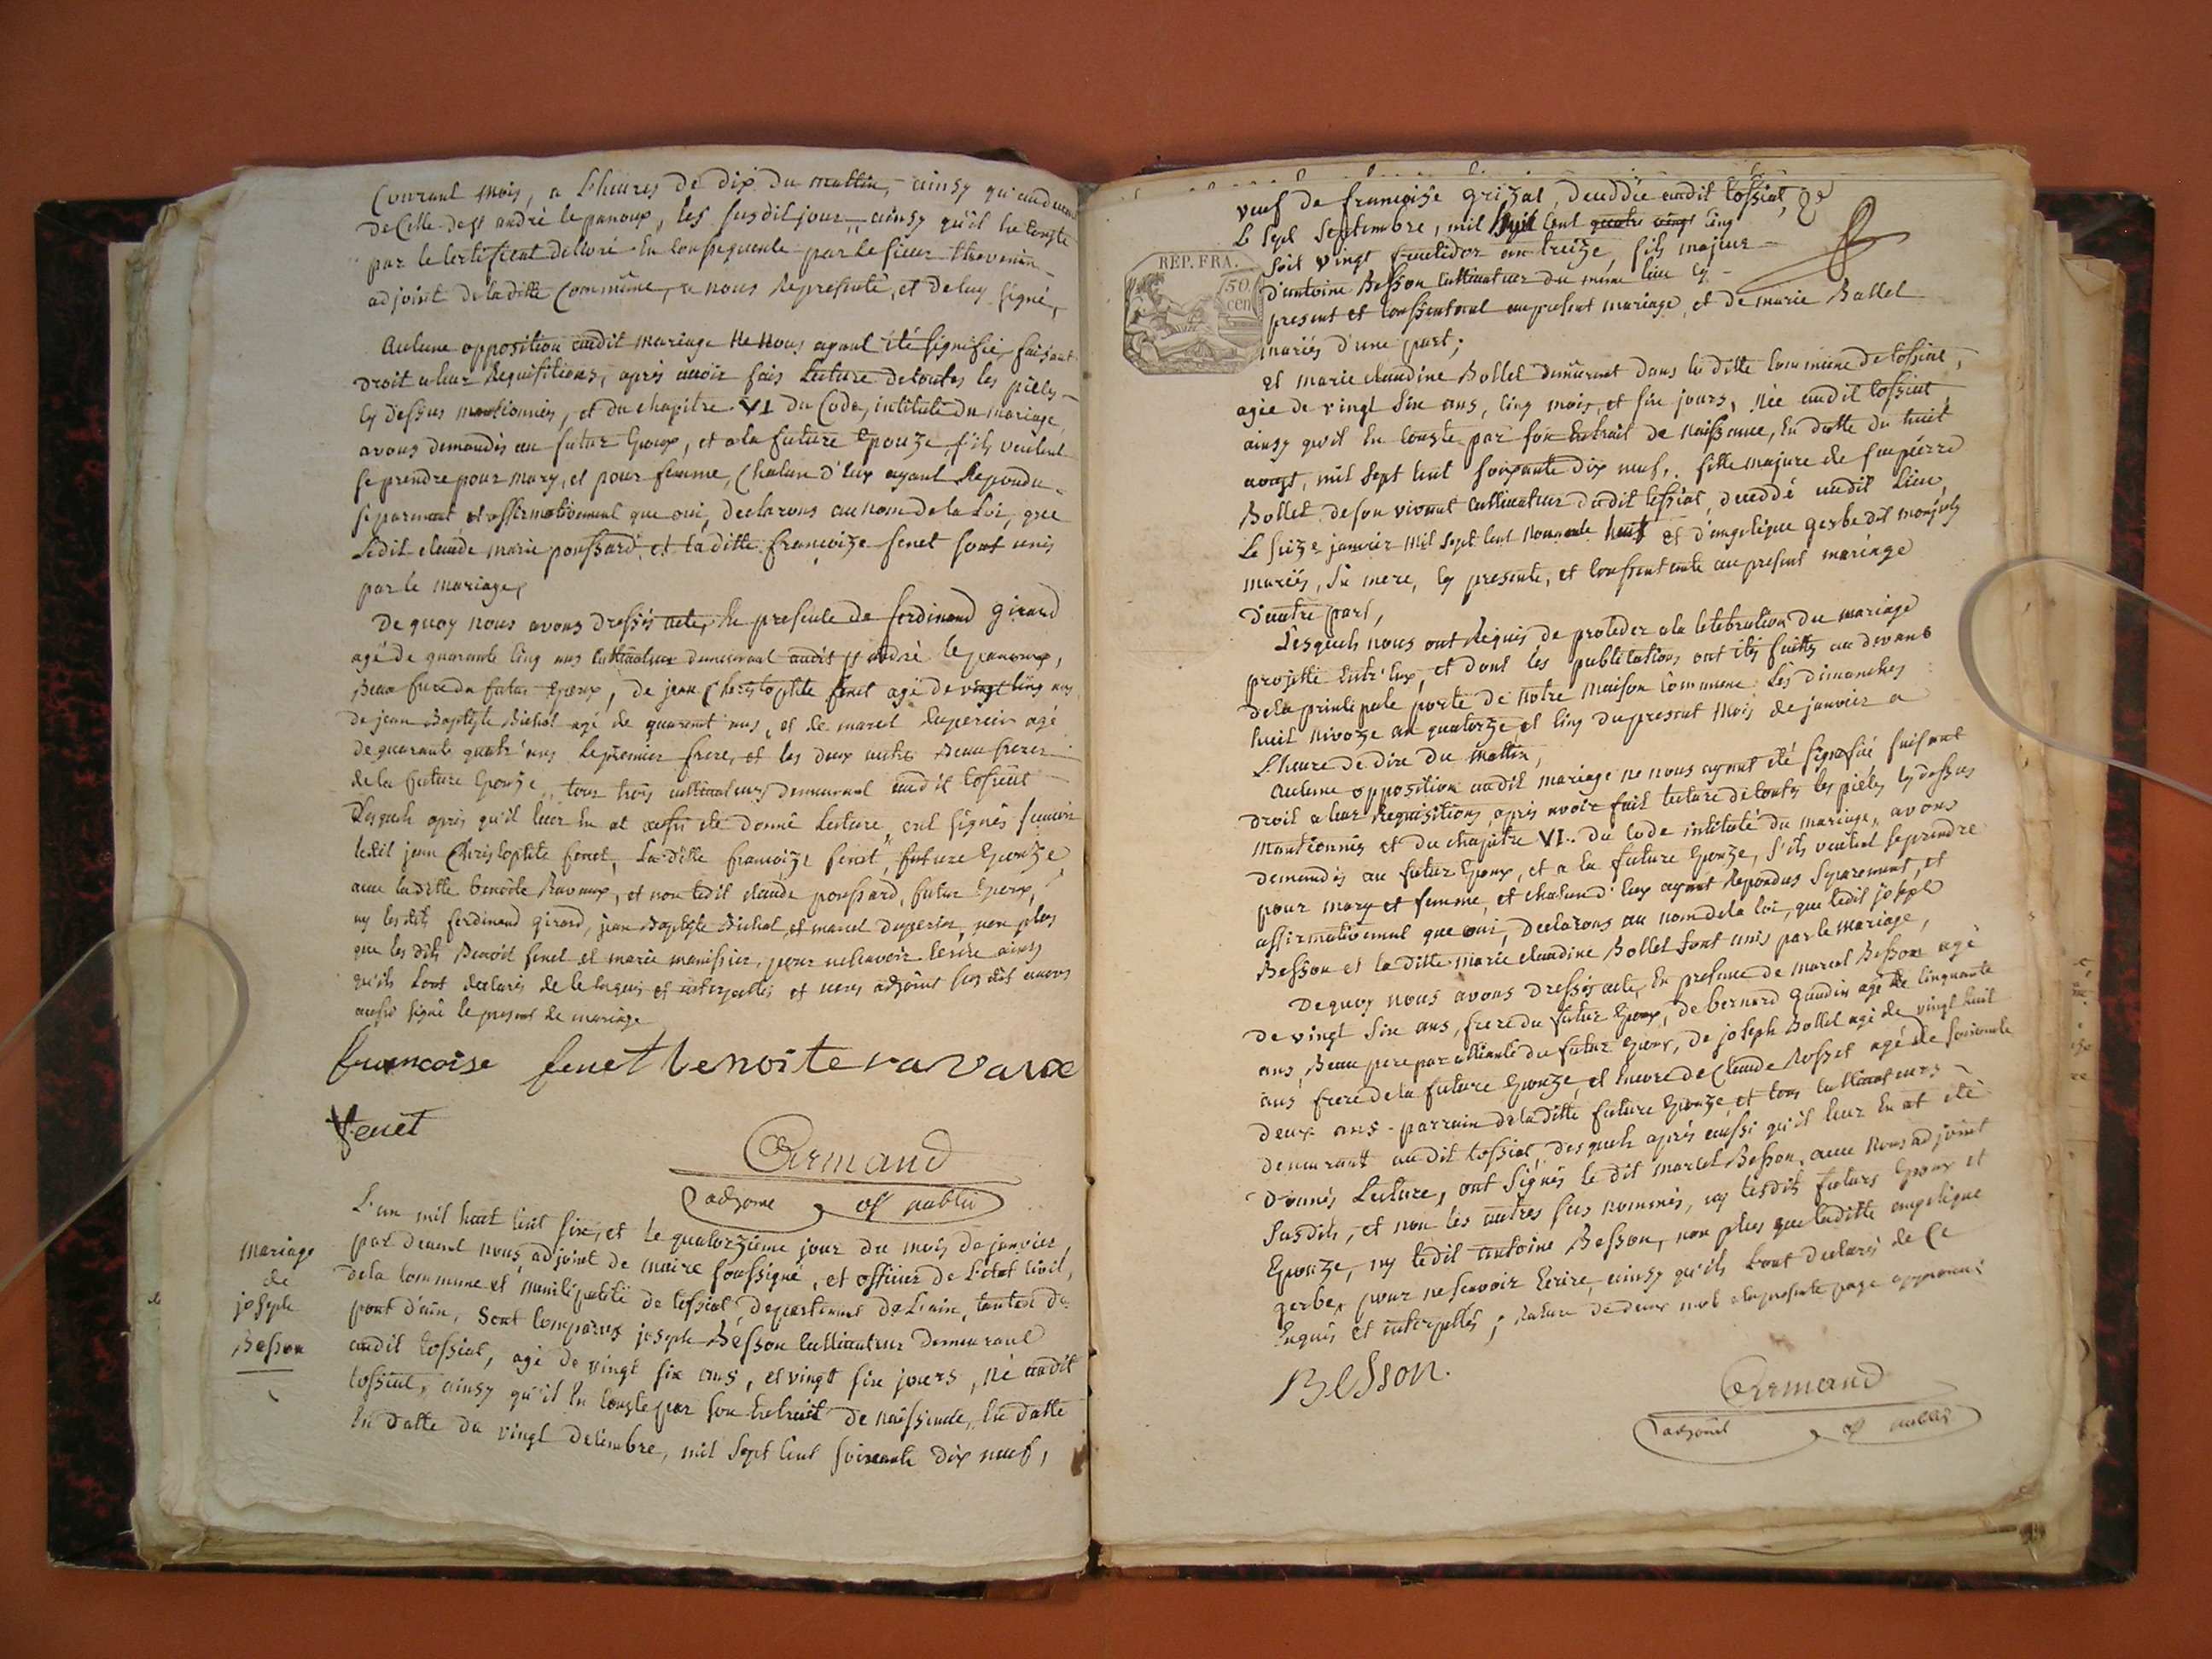 Courant mois, a L'heures de dix du mattin, ainsy qu'audevant
de Celle de st andré le panoux, les susdit jour, ainsy qu'il en Conste
par le Certificat delivré En Consequence par le sieur thevenin
adjoint de la ditte Commûne, a nous Representé, et de luy signé,
Aucune opposition audit mariage ne nous ayant été signifié, faisant
droit a leur Requisitions, après avoir fais Lecture de toutes les pieces
cy dessus mentionnées, et du chapitre VI du Code, intitulé du mariage
avons demandés au futur Epoux, et a la future Epouze s'ils veulent
se prendre pour mary, et pour femme, Chacun d'Eux ayant Repondu
separement et affirmativement que oui, declarons au nom de la Loi, que
Ledit claude marie poussard, et la ditte francoize fenet sont unis
par le mariage,
De quoy nous avons dressés acte, En presence de ferdinand girard
agé de quarante cinq ans cultivateur demeurant audit st andré le panoux,
Beau frere du futur Epoux, de jean Christophe fenet agé de vingt cinq ans
de jean Baptiste Bichat agé de quarant ans, et de marcel duperier agé
de quarante quatr'ans le premier frere, et les deux autres Beau freres
de la future Epouze, tous trois cultivateurs demeurant audit tossiat
Desquels après qu'il leur En at aussi été donné Lecture, ont signés
ledit jean Christophe fenet, La ditte francoize fenet, future Epouze
avec la ditte benoite Ravaux, et non ledit claude poussard, futur Epoux,
ny lesdits ferdinand girard, jean Baptiste Bichat, et marcel duperier, non plus
que les dits Benoit fenet et marie manissier, pour ne scavoir Ecrire ainsy
qu'ils Lont declarés de ce Enquis et interpellés et nous adjoint sus dit avons
aussi signé le present de mariage
francoise fenet benoite ravaux
fenet
Armand
adjoint of public
mariage
de
joseph
Besson
L'an mil huit cent six, et le quatorzième jour du mois de janvier,
par devant nous adjoint de maire soussigné, et officier de L'etat Civil,
de la commune et municipalité de tossiat, departement de L'ain, canton de
pont d'ain, sont comparus joseph Besson cultivateur demeurant
audit tossiat, agé de vingt six ans, et vingt six jours, né audit
tossiat, ainsy qu'il En conste par son Extrait de naissance, En datte
En datte du vingt decembre, mil sept cent soixante dix neuf,
REP. FRA.
50
cen
veuf de francoise grizat, decedée audit tossiat,
Le sept septembre, mil huit cent quatre vingt cinq
soit vingt fructidor an treize, fils majeur
d'antoine Besson cultivateur du même lieu cy
present et consentant au present mariage, et de marie Ballet
mariés d'une part;
et marie claudine Bollet demeurant dans la ditte commune de tossiat,
agée de vingt six ans, cinq mois, et six jours, née audit tossiat,
ainsy qu'il En conste par son Extrait de naissance, En datte du huit
aougt, mil sept cent soixante dix neuf, fille majure de feu pierre
Bollet de son vivant cultivateur dudit tossiat, decedé audit Lieu,
Le seize janvier mil sept cent nonante neuf et d'angelique gerbe dit monjoly
mariés, sa mere, cy presente, et consentante au present mariage
d'autre part,
Lesquels nous ont Requis de proceder a la celebration du mariage
projetté Entr'Eux, et dont les publications ont étés faittes au devant
de la principale porte de notre maison commune. Les dimanches
huit nivoze an quatorze et cinq du present mois de janvier a
L'heure de dix du mattin,
Aucune opposition audit mariage ne nous ayant été signifié faisant
droit a leur Requisitions, après avoir fait lecture de toutes les pieces cy dessus
mentionnés et du chapitre VI. du Code intitulé du mariage, avons
demandés au futur Epoux, et a la future Epouze, s'ils veulent se prendre
pour mary et femme, et chacun d'Eux ayant Repondus separement, et
affirmativement que oui, declarons au nom de la loi, que ledit joseph
Besson et la ditte marie claudine Bollet sont unis par le mariage,
De quoy nous avons dressés acte, En presence de marcel Besson agé
de vingt six ans, frere du futur Epoux, de bernard gaudin agé de cinquante
ans, Beau pere par alliance du futur Epoux, de joseph Bollet agé de vingt huit
ans frere de la future Epouze, et Encore de Claude Rosset agé de soixante
deux ans parrain de la ditte future Epouze, et tous cultivateurs
demeurant audit tossiat, desquels après aussi qu'il leur En at été
donnés Lecture, ont signés le dit marcel Besson, avec nous adjoint
susdits, et non les autres sus nommés, ny lesdits futurs Epoux et
Epouze, ny ledit antoine Besson, non plus que laditte angelique
gerbe, pour ne scavoir Ecrire, ainsy qu'ils Lont declaré de Ce
Enquis et interpellés; Rature de deux mot a la presente page approuvé
Besson.
Armand
adjoint of public